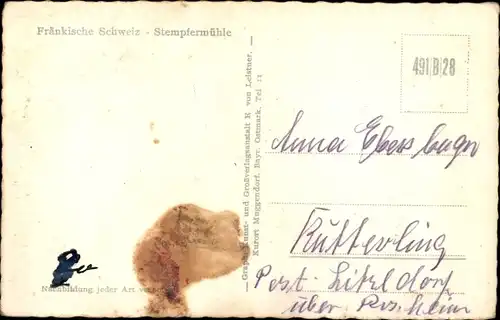 Fränkische Schweiz - Stempfermühle
491 B 28
Graph. Kunst- und Großverlagsanstalt K von Leistner,
Kurort Muggendorf, Bayr. Ostmark, Tel 11
Anna Ebersberger
Kutterling
Post Litzldorf
über Rosenheim
Nachbildung jeder Art